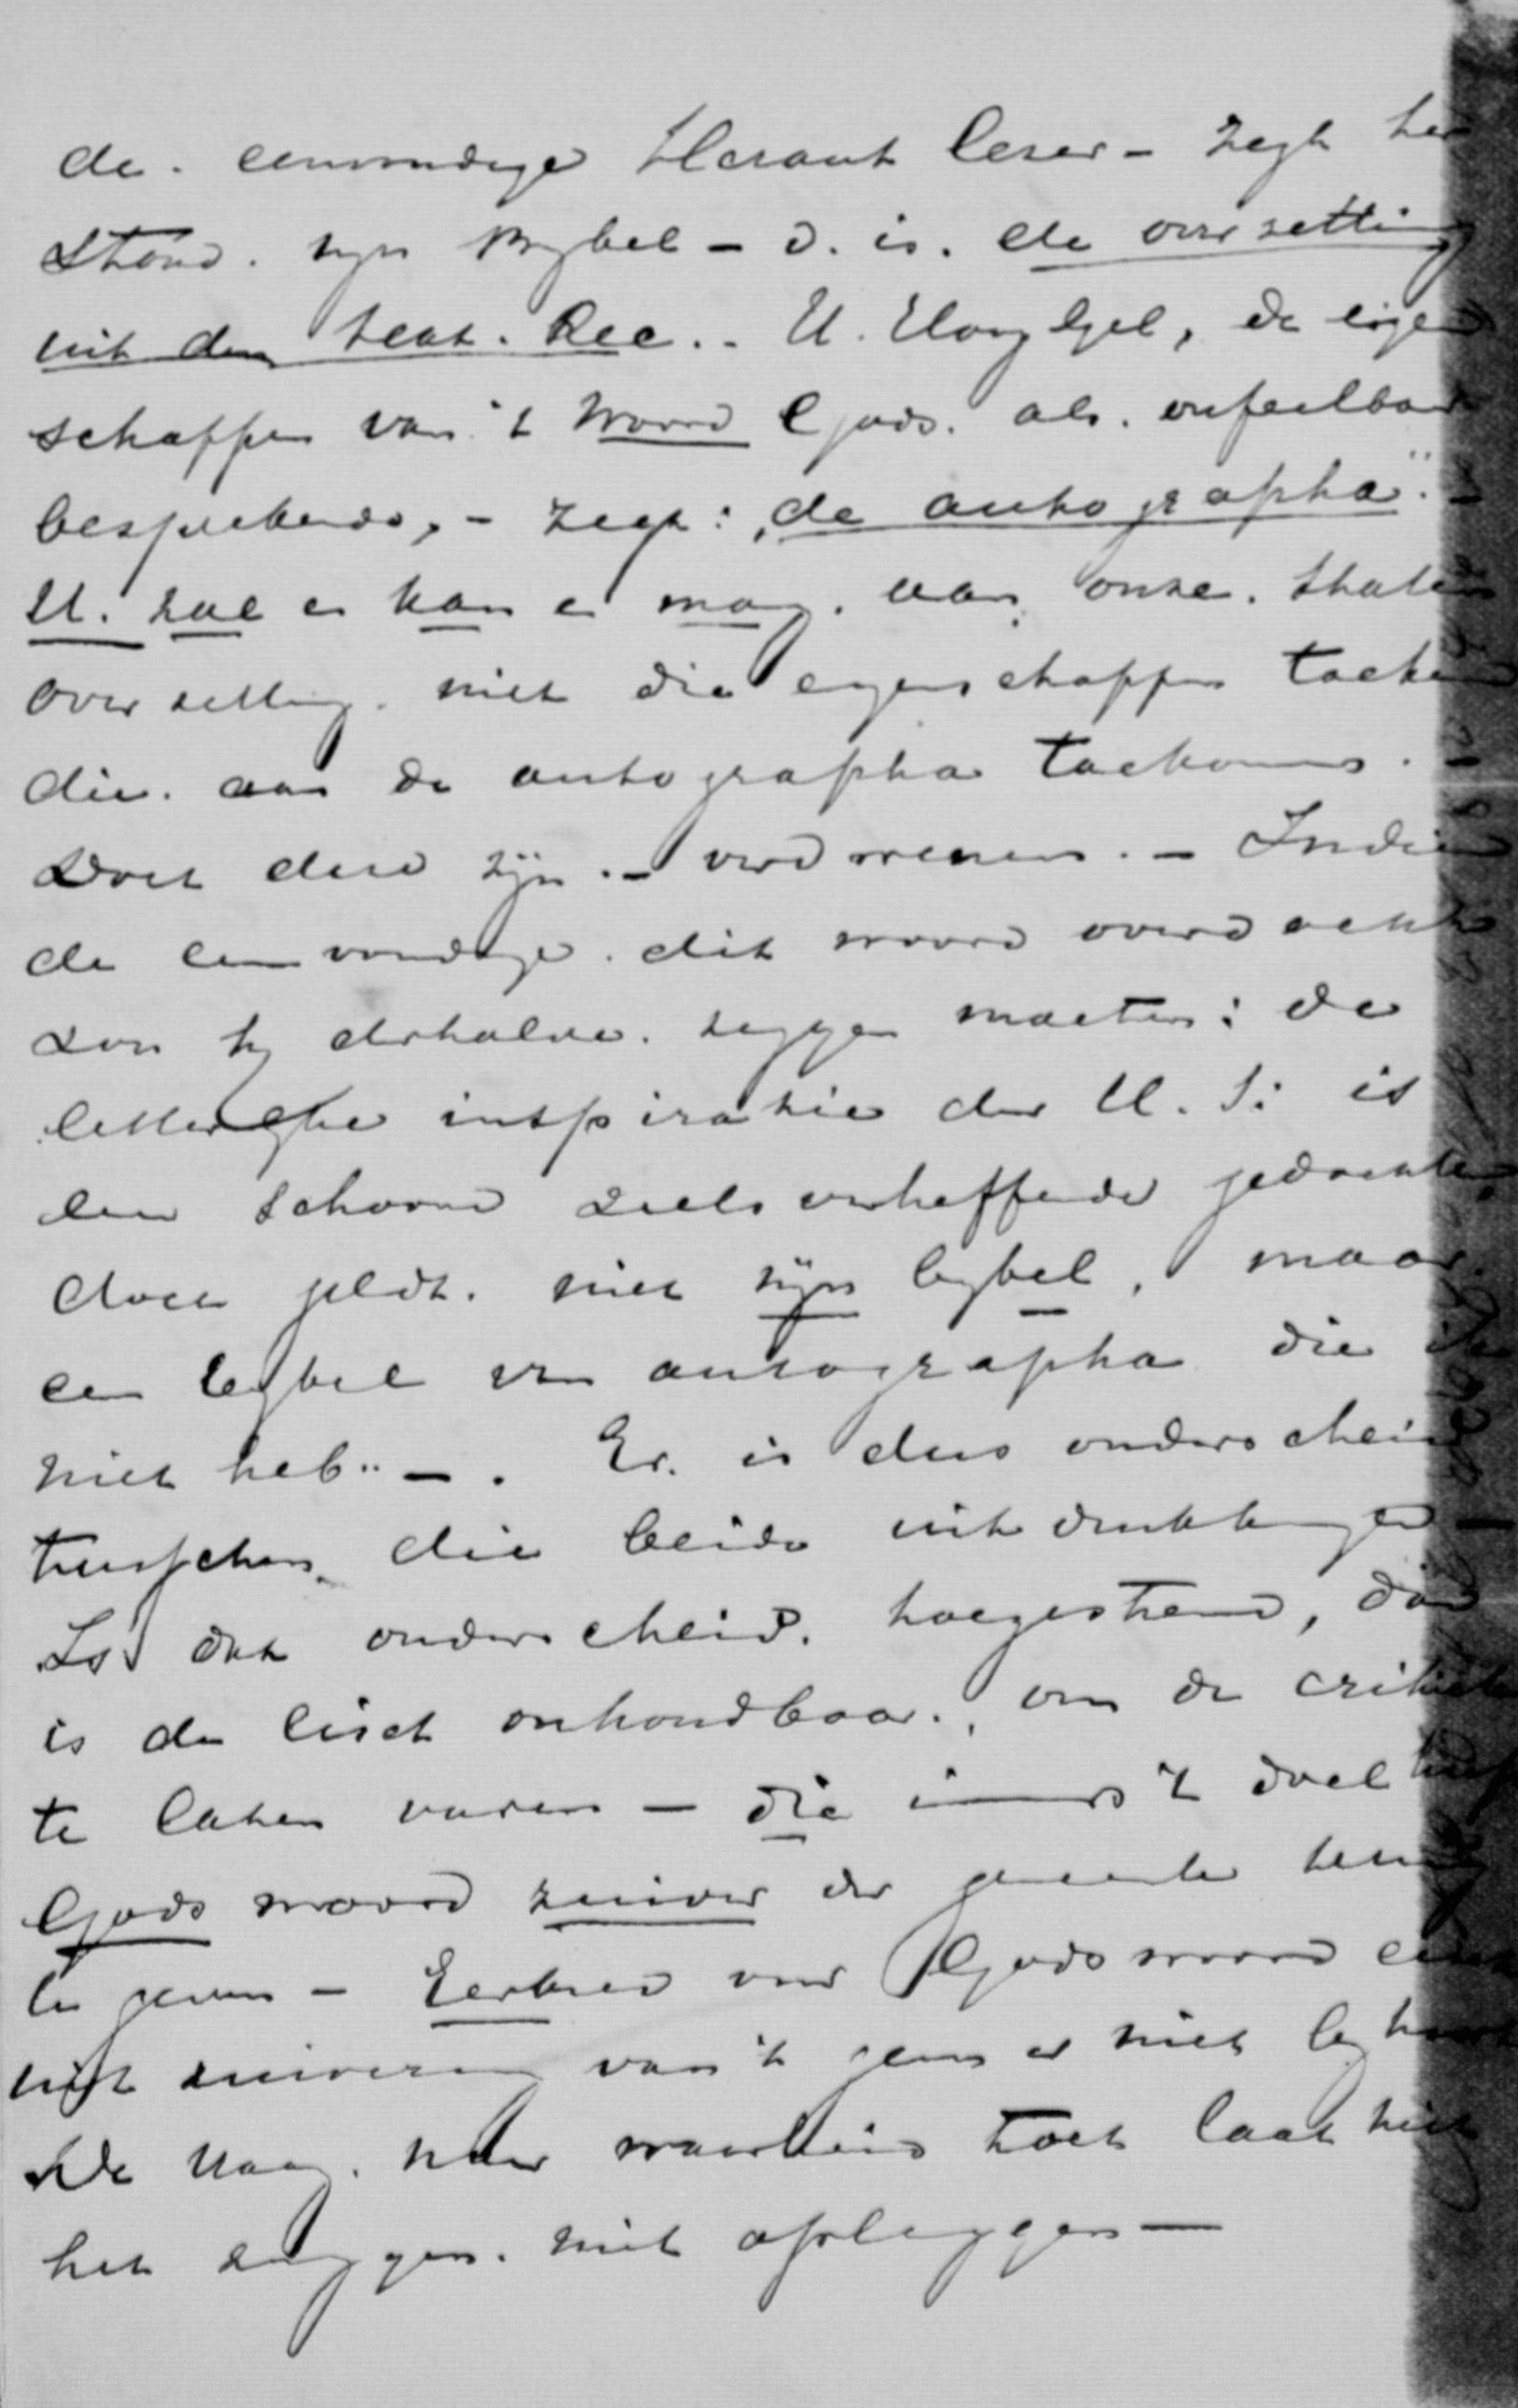 de. eenvoudige Heraut lezer - zegt
stond. zyn Bybel - d. is. de overzetting
uit den text. Rec.. - U. Hoog Eel, de eigen
schappen van 't Woord Gods. als. onfeilbaar
besprekende, - zegt: „de autographa". -
U. zal en kan en mag. aan onze. Staten
overzetting. niet die eigenschappen
die. aan de autographa toekomen. -
deze zijn. - verdwenen. - Indien
de eenvoudige. dit woord overdacht
zou hy derhalve. zeggen moeten: de
letterlyke inspiratie der H. S: is
een schoone zielsverheffende gedachte,
doch geldt. niet zijn bybel, maar
een bybel van autographa die ik
niet heb" - . Er. is dus onderscheid
tusschen die beide uitdrukkingen
Is dat onderscheid. toegestemd, dan
is de eisch onhoudbaar., om de critiek
te laten varen - die immers 't doel
Gods woord zuiver der gemeente
te geven - Eerbied voor Gods woord
zuivering van 't geen er niet by
De
het zwygen. niet opleggen -